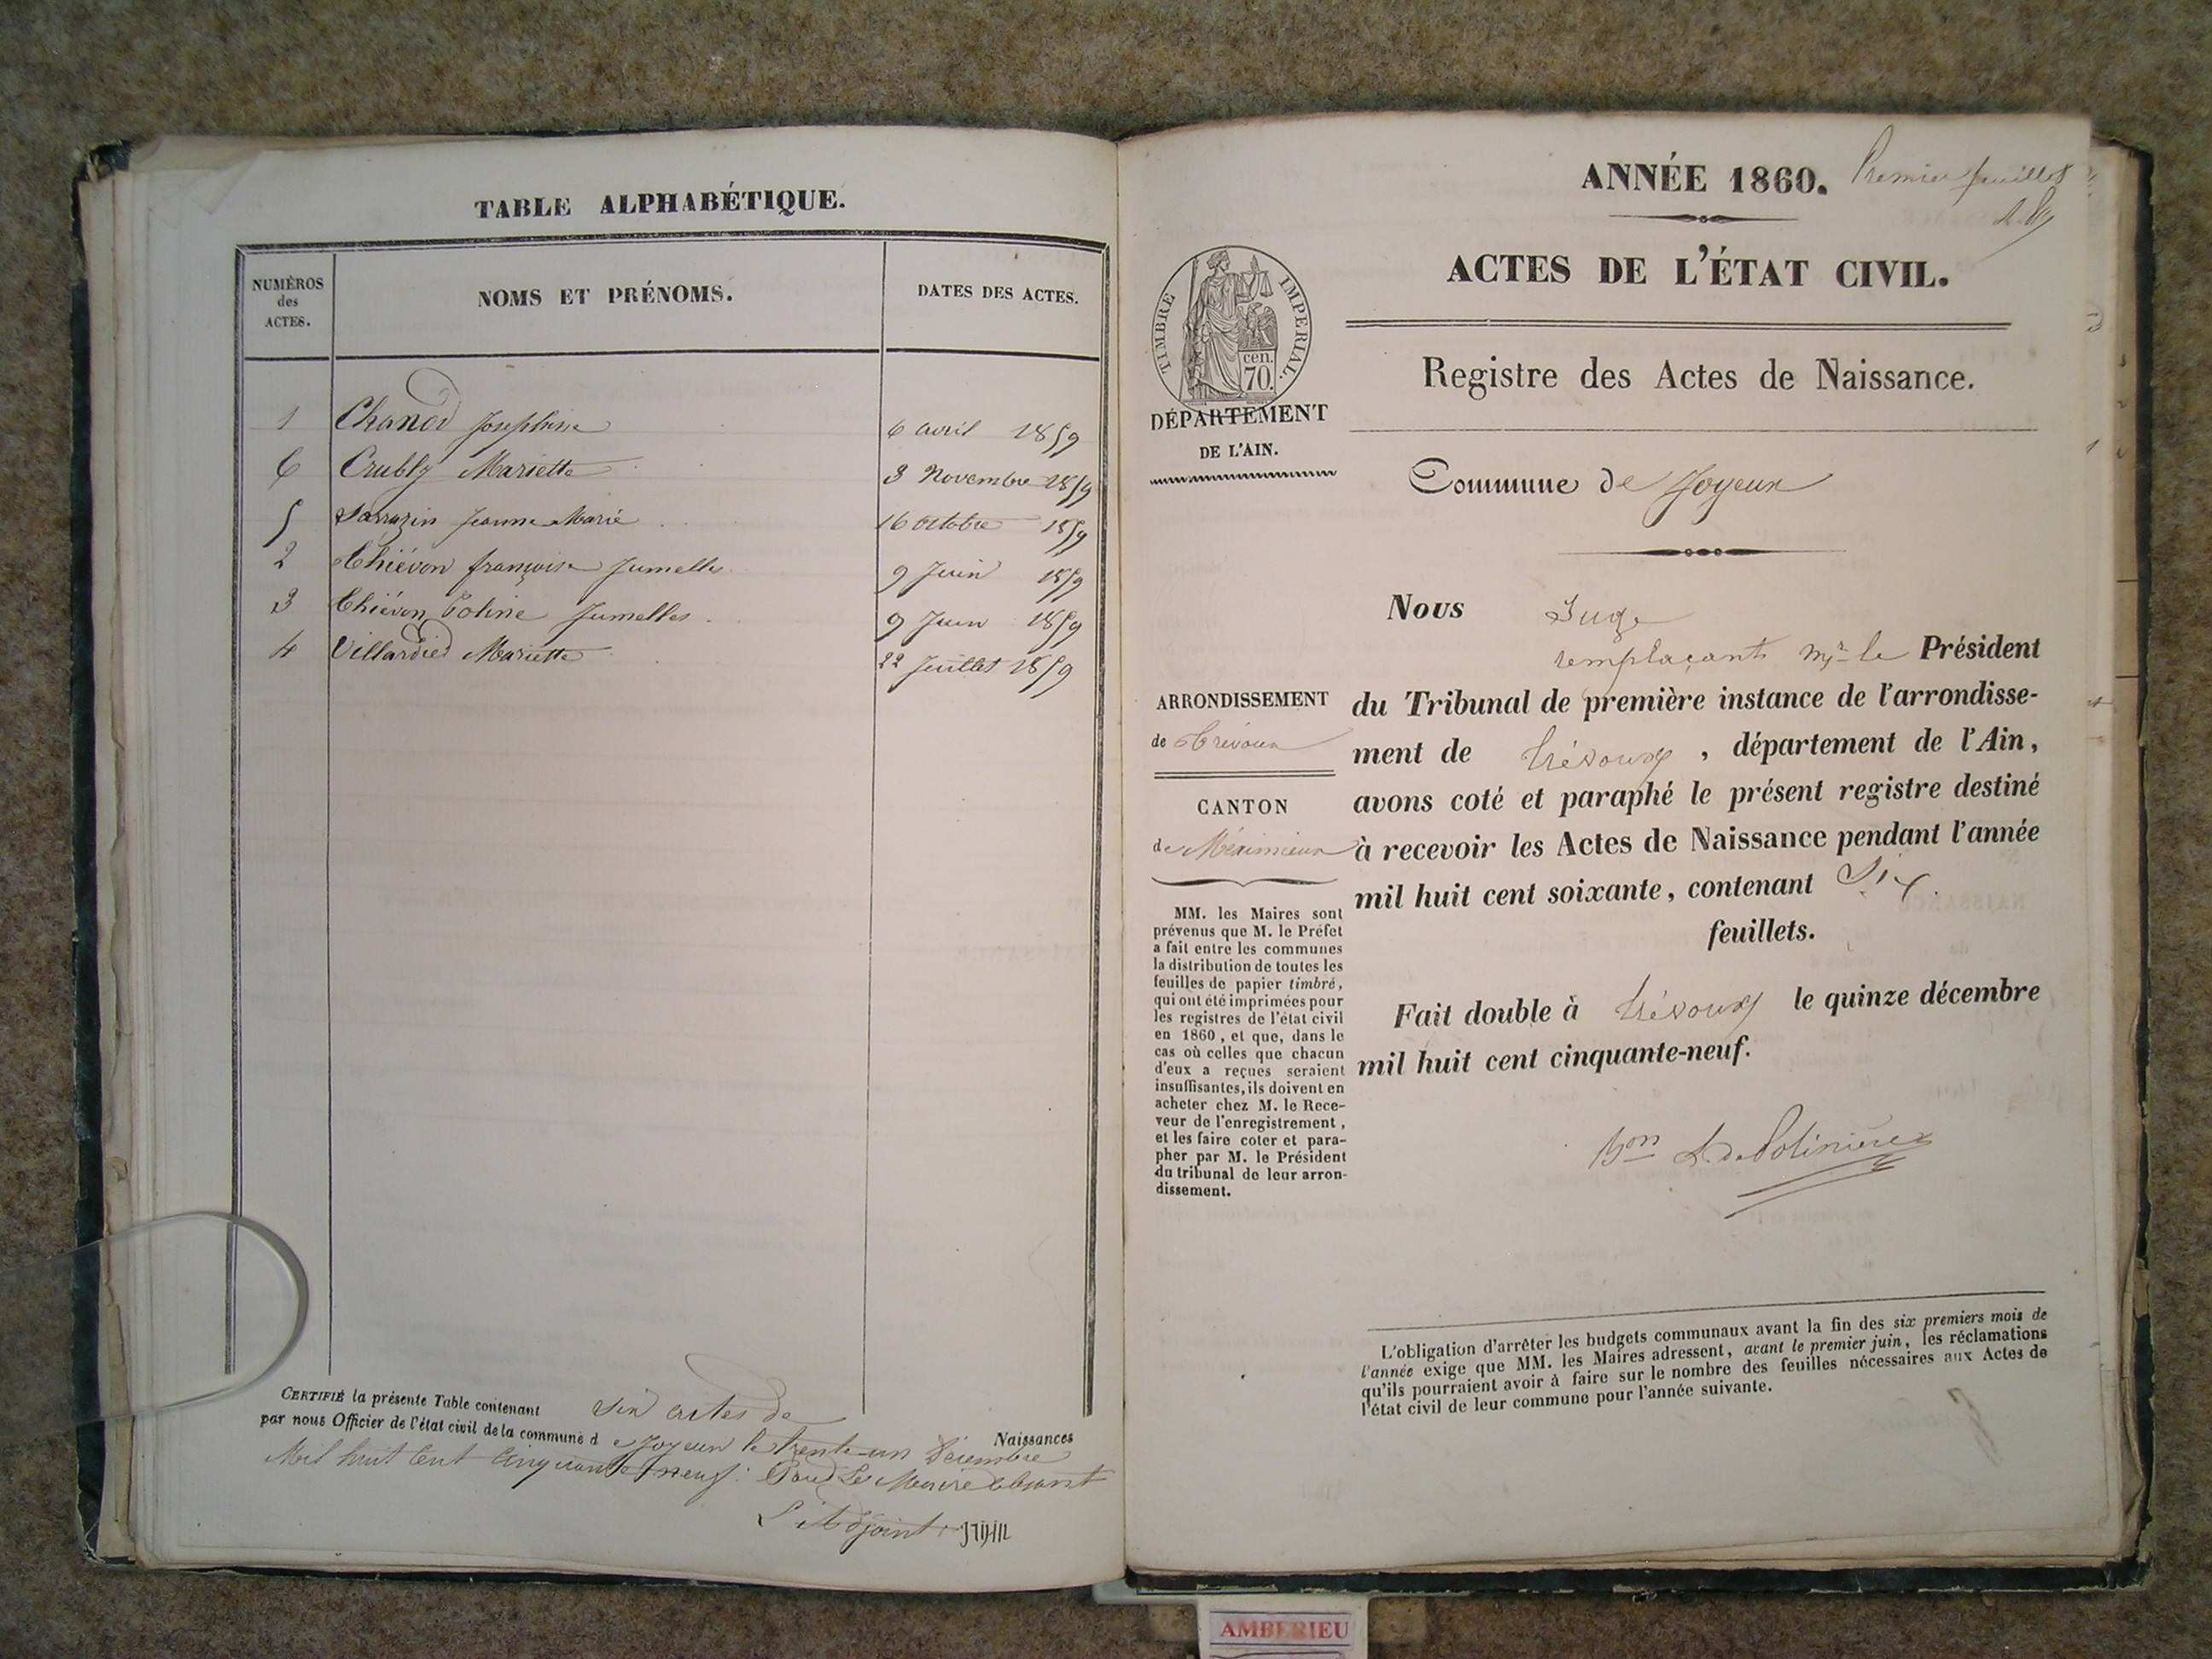 TABLE ALPHABÉTIQUE.
NUMÉROS
des
ACTES.
NOMS ET PRÉNOMS.
DATES DES ACTES.
1 Chanel Josephine 6 avril 1859
6 Crubly Mariette 3 Novembre 1859
5 Sarrazin Jeanne Marie 16 octobre 1859
2 Thiévon françoise Jumelles 9 Juin 1859
3 Thiévon Poline Jumelles 9 Juin 1859
4 Villardier Mariette 22 Juillet 1859
CERTIFIÉ la présente Table contenant six actes de Naissances
par nous Officier de l'état civil de la commune de Joyeux le trente un Décembre
Mil huit cent cinquante neuf. Pour Le Maire absent
L'adjoint
ANNÉE 1860. Premier feuillet
ACTES DE L'ÉTAT CIVIL.
TIMBRE IMPERIAL.
cen.
70.
DÉPARTEMENT
DE L'AIN.
Registre des Actes de Naissance.
Commune de Joyeux
ARRONDISSEMENT
de Trévoux
CANTON
de Méximieux
MM. les Maires sont
prévenus que M. le Préfet
a fait entre les communes
la distribution de toutes les
feuilles de papier timbré,
qui ont été imprimées pour
les registres de l'état civil
en 1860, et que, dans le
cas où celles que chacun
d'eux a reçues seraient
insuffisantes, ils doivent en
acheter chez M. le Rece-
veur de l'enregistrement,
et les faire coter et para-
pher par M. le Président
du tribunal de leur arron-
dissement.
Nous Juge
remplaçant Mr le Président
du Tribunal de première instance de l'arrondisse-
ment de Trévoux, département de l'Ain,
avons coté et paraphé le présent registre destiné
à recevoir les Actes de Naissance pendant l'année
mil huit cent soixante, contenant Six
feuillets.
Fait double à Trévoux le quinze décembre
mil huit cent cinquante-neuf.
Bon L. de Polinière
L'obligation d'arrêter les budgets communaux avant la fin des six premiers mois de
l'année exige que MM. les Maires adressent, avant le premier juin, les réclamations
qu'ils pourraient avoir à faire sur le nombre des feuilles nécessaires aux Actes de
l'état civil de leur commune pour l'année suivante.
AMBERIEU